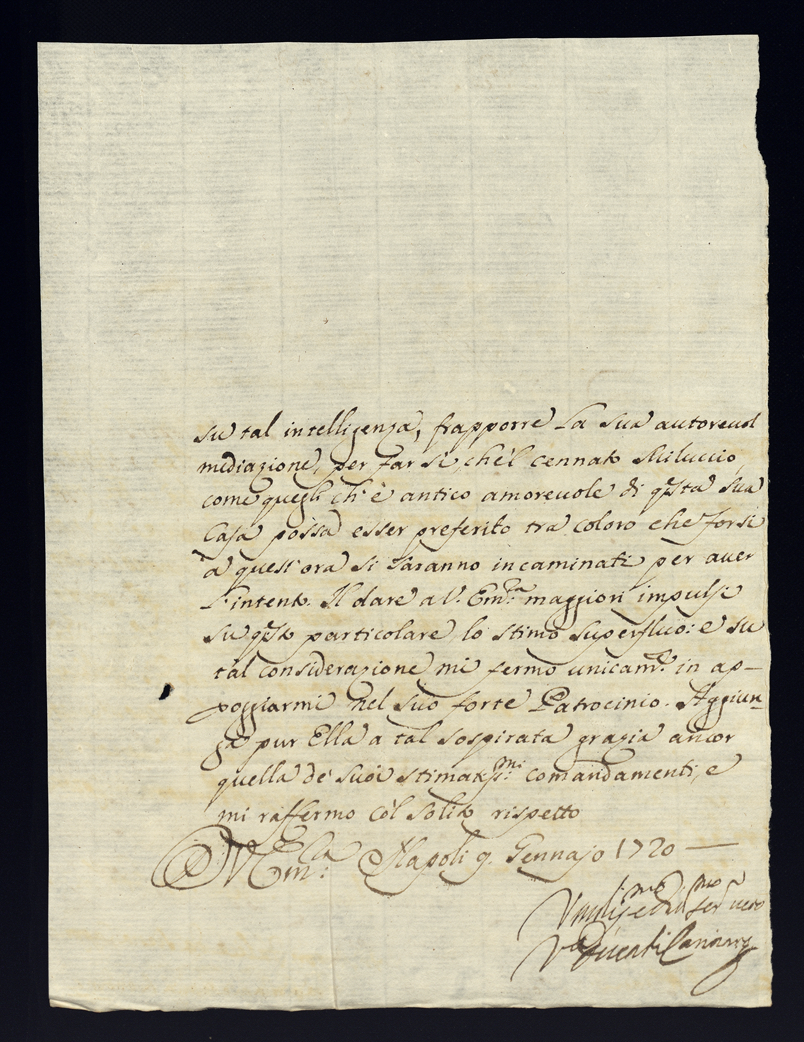 su tal intelligenza, frapporre la sua autoreuol
mediazione, per far sì, che'l cennato Miluccio,
come quegli ch'è antico amoreuole di q̃sta sua
Casa possa esser preferito tra coloro che forsi
à quest'ora si saranno incaminati per auer
l'intento. Il dare a V. Em.za maggiori impulsi
su q̃sto particolare lo stimo superfluo: e su
tal considerazione mi fermo unicam.te in ap-
poggiarmi nel suo forte Patrocinio. Aggiun-
ga pur Ella a tal sospirata grazia ancor
quella de' suoi stimatis.mi comandamenti, e
mi raffermo col solito rispetto
Em.za Napoli 9. Gennajo 1720
ser uero